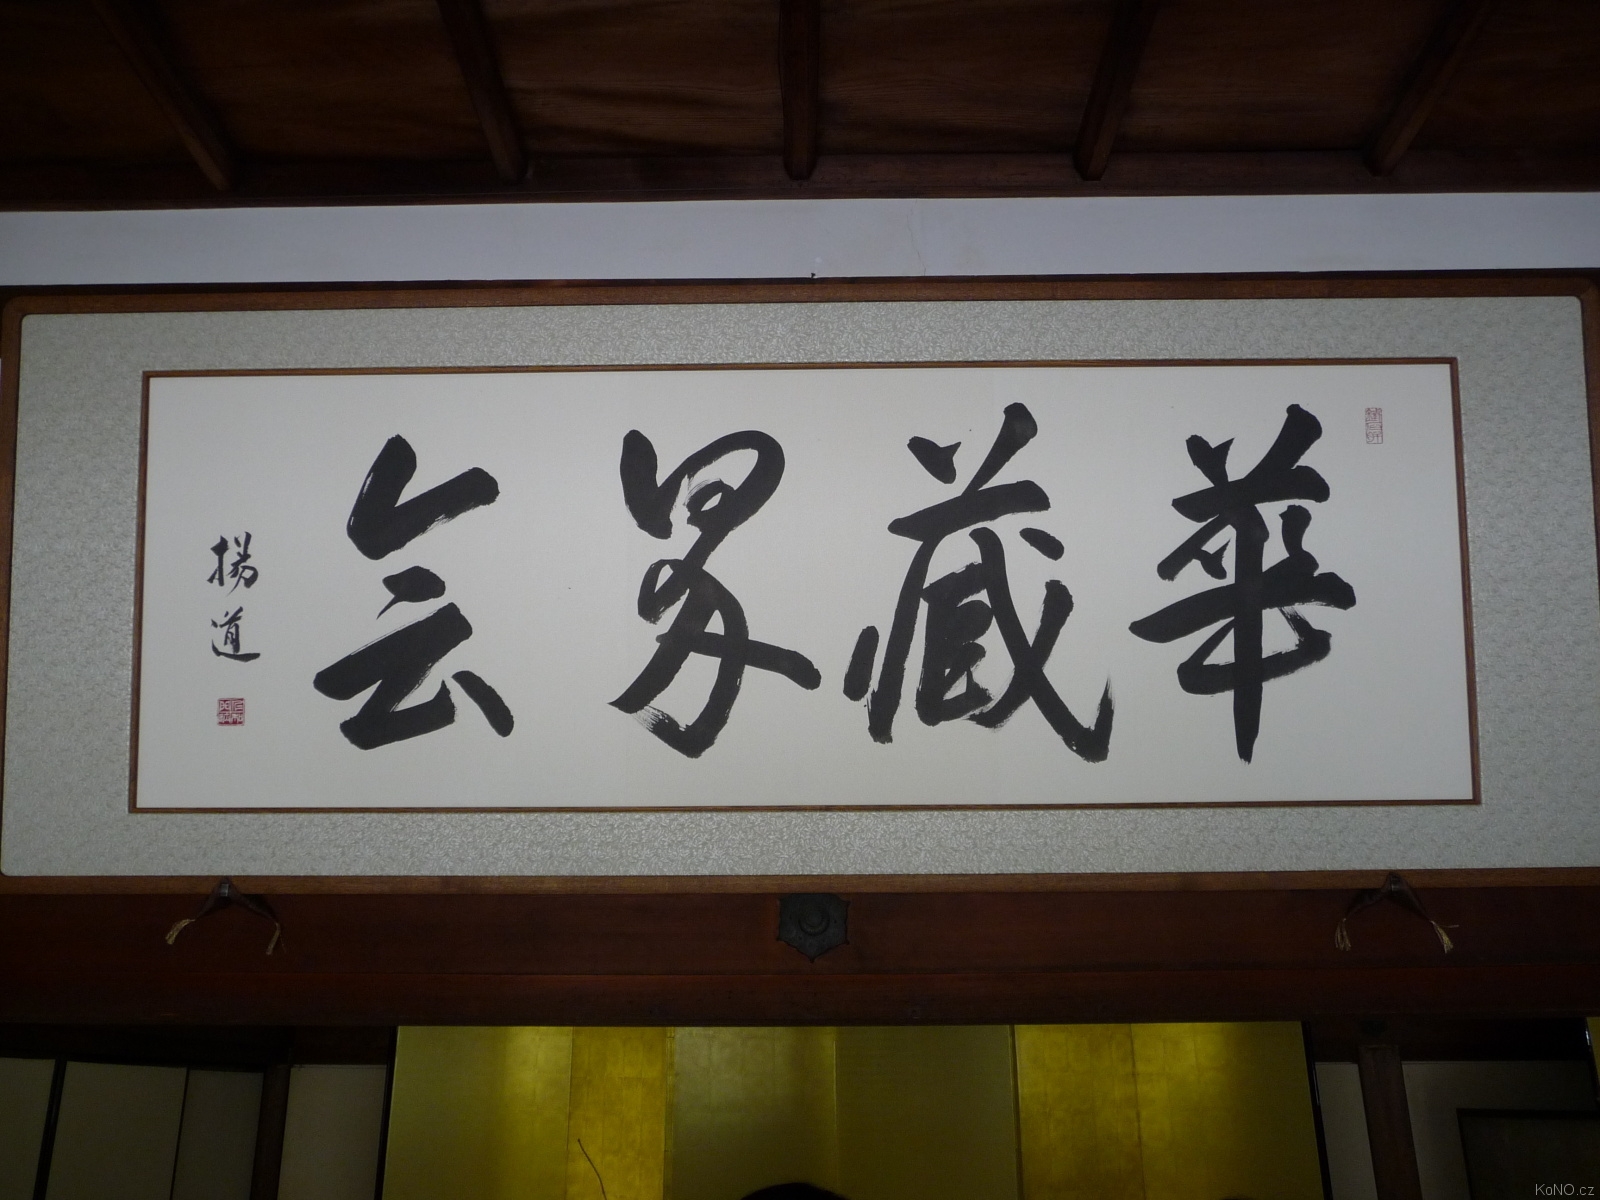 華藏界会
楊道
KoNO.cz